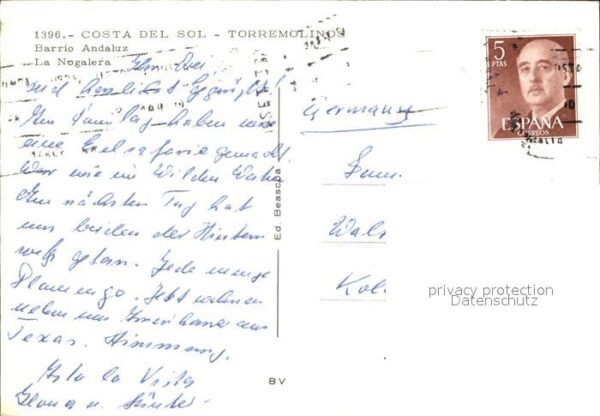 1396.- COSTA DEL SOL - TORREMOLINOS
Barrio Andaluz
La Nogalera
Ihr Drei,
seid herzlichst gegrüßt!
Am Samstag haben wir
eine Eselsafarie gemacht
War wie im Wilden Westen
Am nächsten Tag hat
uns beiden der Hintern
weh getan. Jede menge
Flamengo. Jetzt wohnen
neben uns Amerikaner aus
Texas. Stimmung.
Asta la Vista
u.
Ed. Beascoa
BV
5
PTAS
ESPAÑA
CORREOS
Germany
Fam.
Köl
privacy protection
Datenschutz